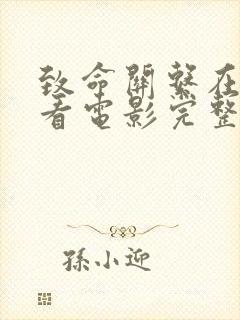 致命關繫在
看電影完整
孫小迎